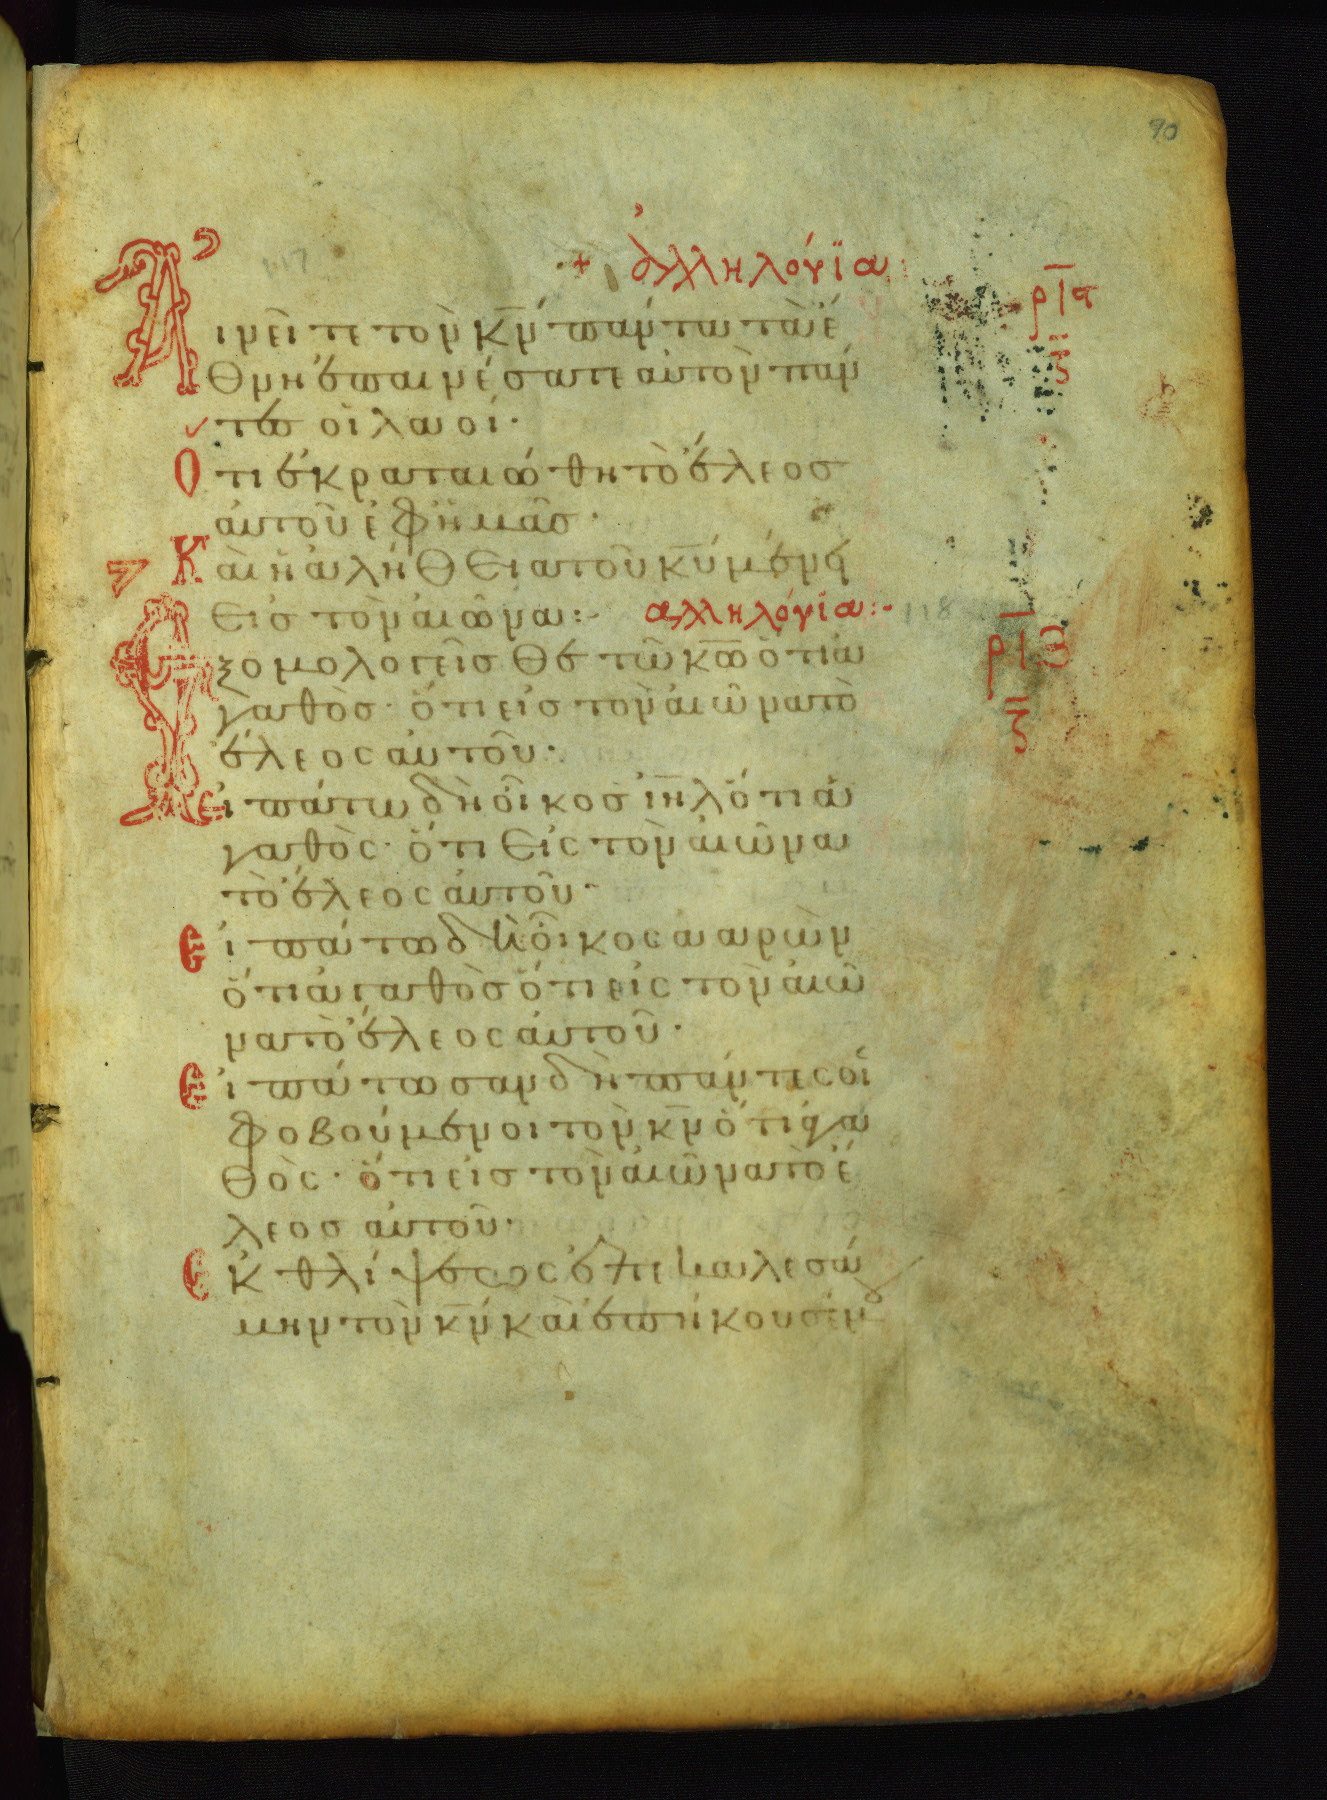 90
117
+ ἀλληλούϊα
ρις
ξ
Αἰνεῖτε τὸν κ̅ν̅ πάντα τὰ ἔ
θνη ἐπαινέσατε αὐτὸν πάν
τε οἱ λαοί·
Ὅτι ἐκραταιώθη τὸ ἔλεος
αὐτοῦ ἐφ ἡμᾶς·
Καὶ ἡ ἀλήθεια τοῦ κ̅υ̅ μένει
εἰς τὸν αἰῶνα:- ἀλληλόγϊα:-
118
ρι
ξ
Ἐξομολογεῖσθε τῶ κ̅ω̅ ὅτι ἀ
γαθὸς· ὅτι εἰς τὸν αἰῶνα τὸ
ἔλεος αὐτοῦ·
Εἰπάτω δὴ οἶκος ι̅η̅λ̅ ὅτι ἀ
γαθὸς· ὅτι εἰς τὸν αἰῶνα
τὸ ἔλεος αὐτοῦ·
Εἰπάτω δὴ οἶκος ἀαρὼν
ὅτι ἀγαθὸς ὅτι εἰς τὸν αἰῶ
να τὸ ἔλεος αὐτοῦ·
Εἰπάτωσαν δὴ πάντες οἱ
φοβούμενοι τὸν κ̅ν̅ ὅτι ἀγα
θὸς· ὅτι εἰς τὸν αἰῶνα τὸ ἔ
λεος αὐτοῦ·
Ἐκ θλίψεως ἐπεκαλεσά
μην τὸν κ̅ν̅ καὶ ἐπήκουσέν